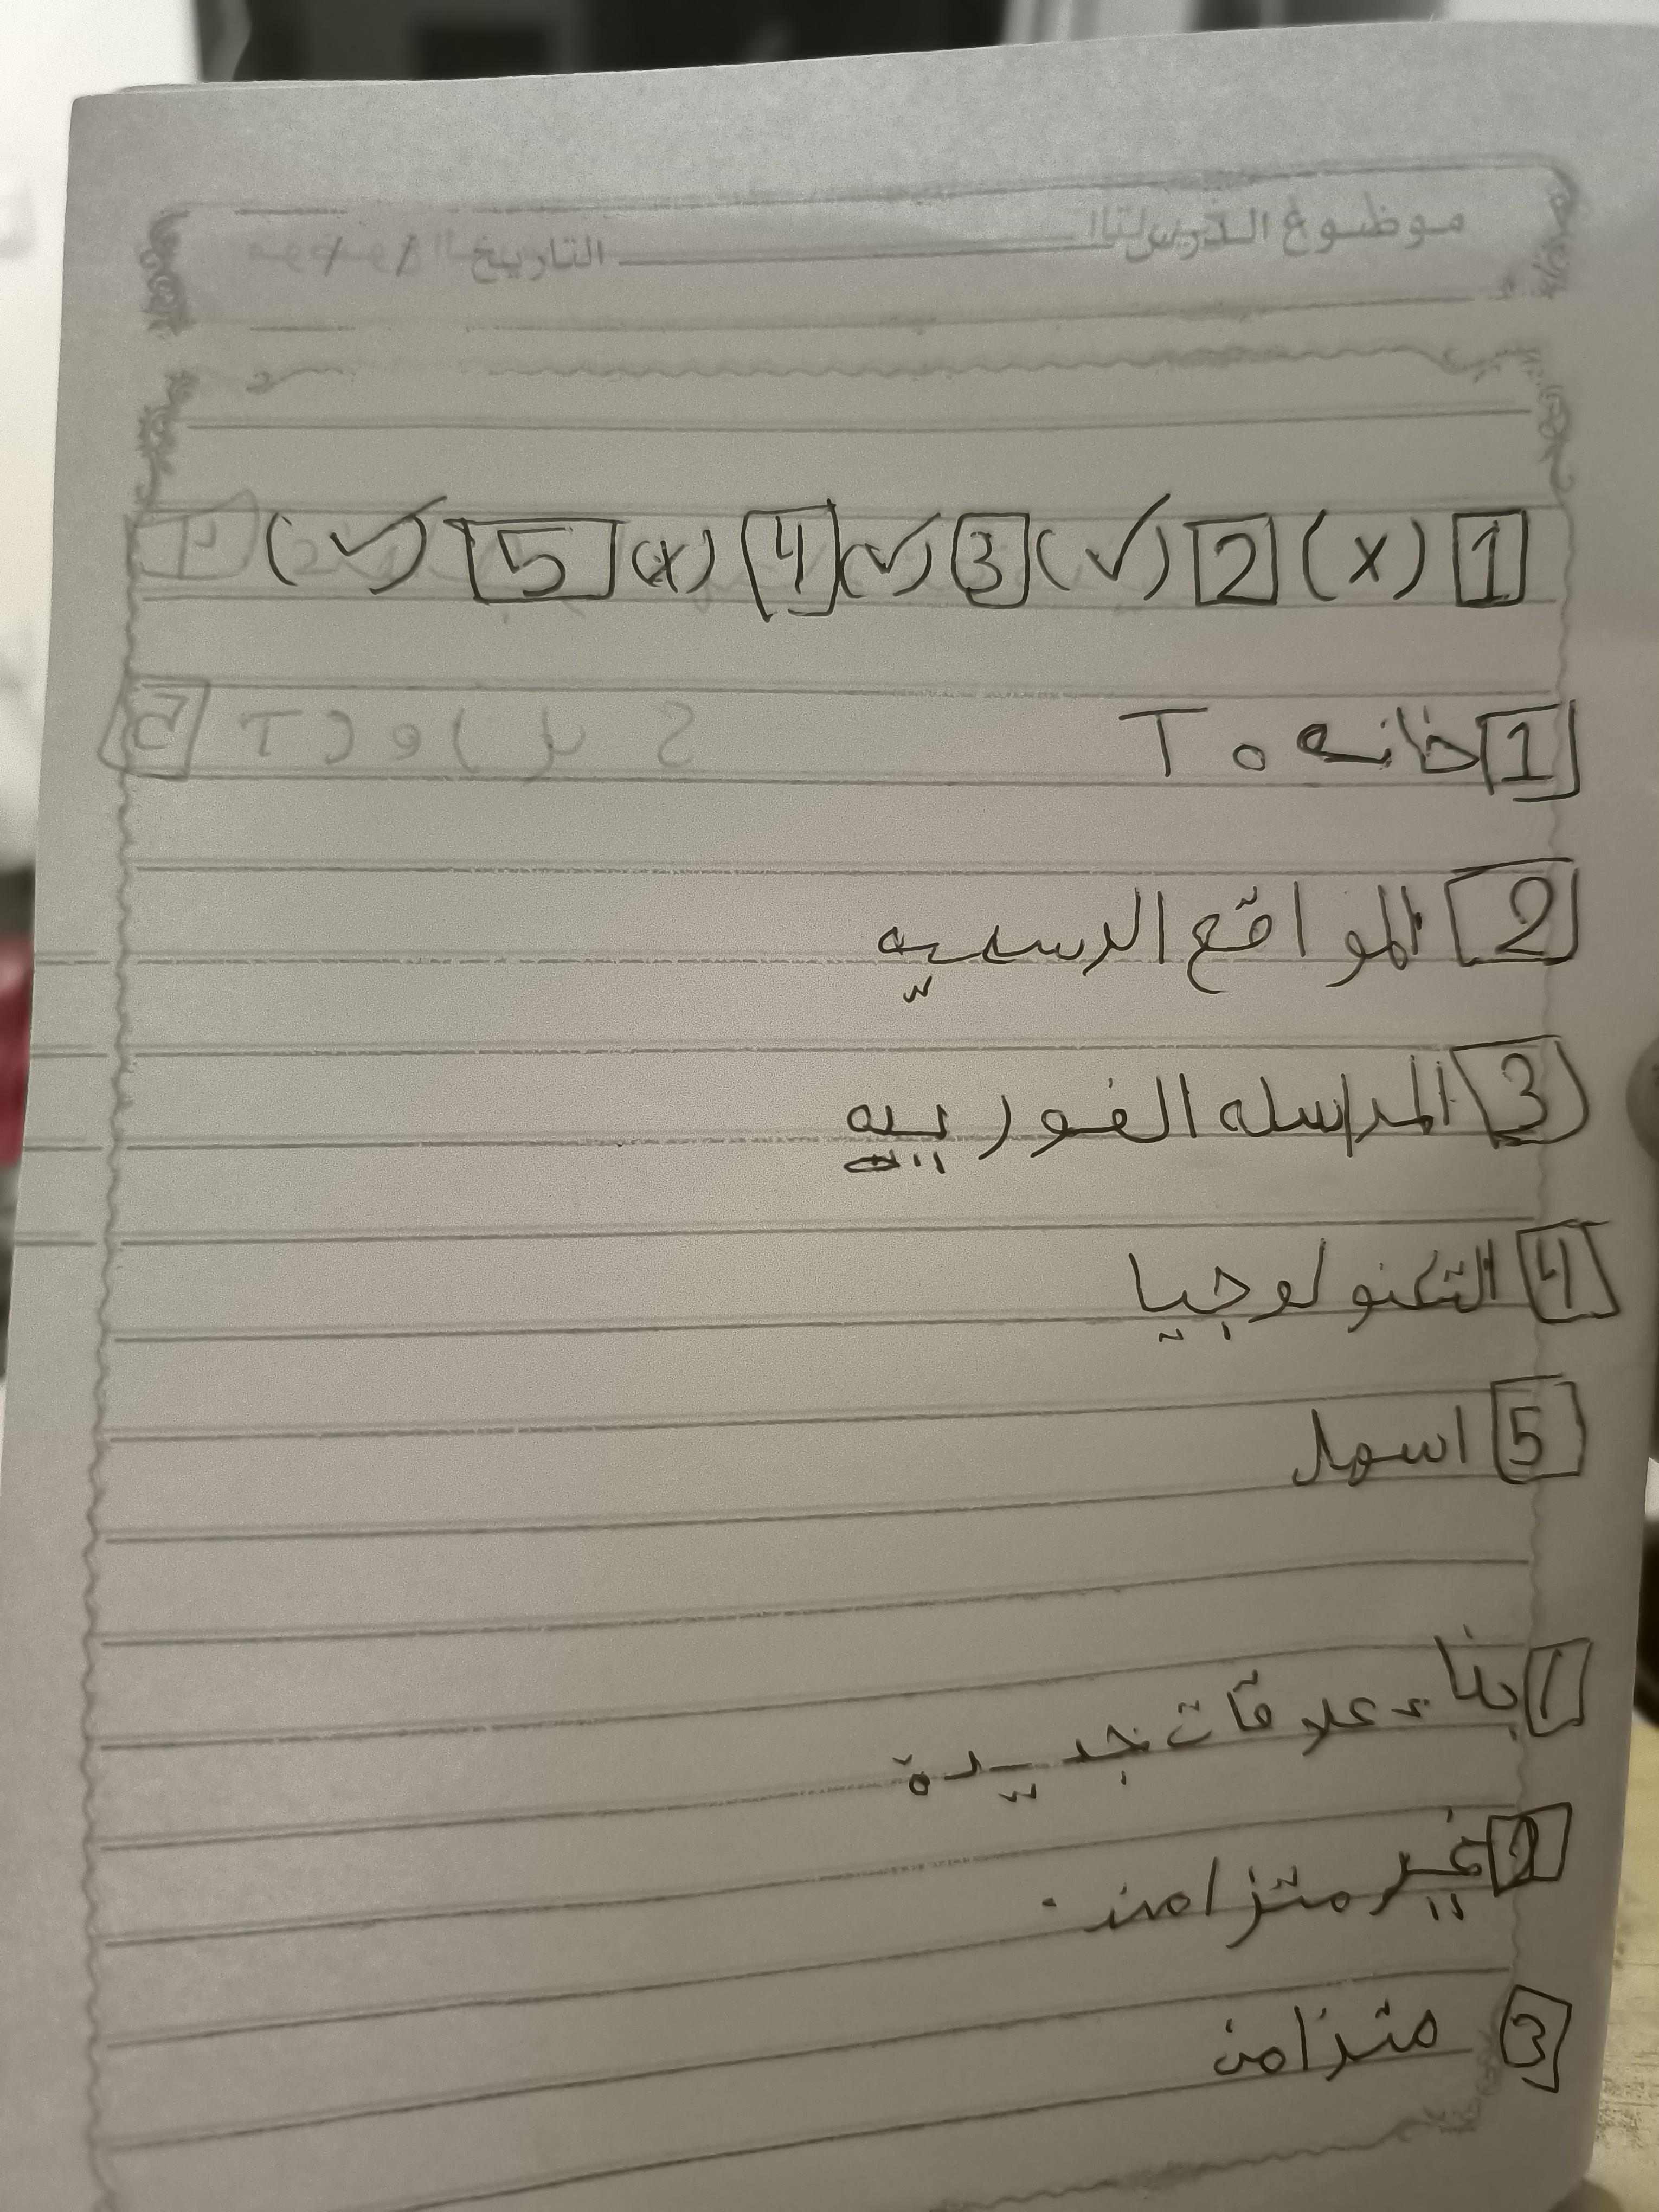 موضوع الدرس التاريخ / /
1 (x) 2 (✓) 3 (✓) 4 (x) 5 (✓)
1 خانه To
2 المواقع الرسميه
3 المراسله الفورييه
4 التكنولوجيا
5 اسهل
1 بناء علاقات جديدة
2 غير متزامن.
3 متزامن